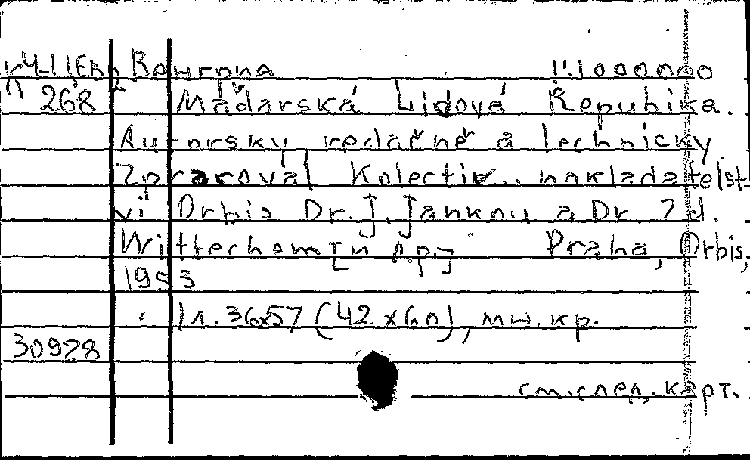 Венгрия 1:1000000
268 Maďarská Lidová Republika.
Autorsky, redačně a technicky
Zpracoval Kolectiv.. nakladatelst-
vi Orbis Dr. J. Jankou a Dr. Zd.
Wittechem [n A.p.] Praha, Orbis,
1953
1 л. 36x57 (42 x 60), мн. кр.
30928
см. след. карт.